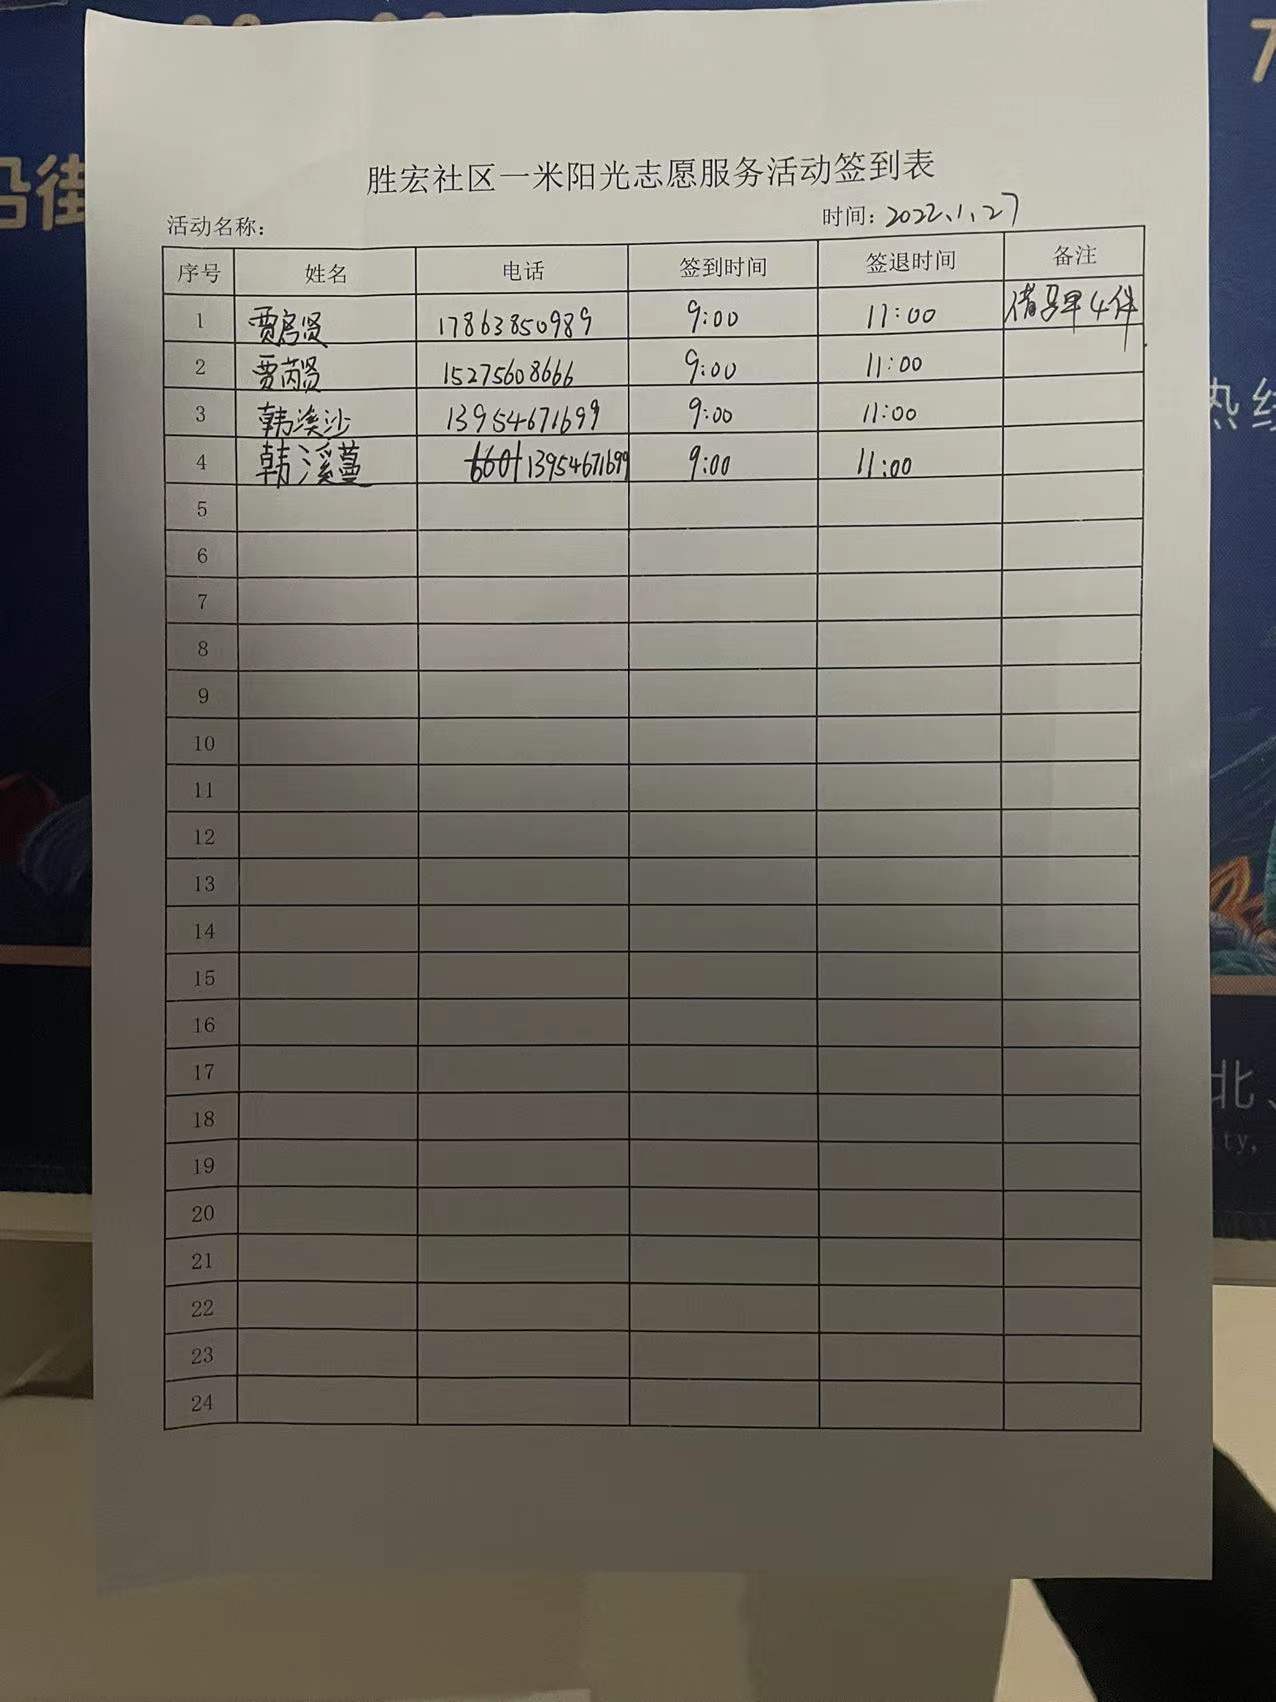 沿街
7
胜宏社区一米阳光志愿服务活动签到表
活动名称： 时间：2022.1.27
序号 姓名 电话 签到时间 签退时间 备注
1 贾启贤 17863850989 9:00 11:00 借马甲4件
2 贾芮贤 15275608666 9:00 11:00
3 韩溪沙 13954671699 9:00 11:00
4 韩溪蔓 13954671699 9:00 11:00
5
6
7
8
9
10
11
12
13
14
15
16
17
18
19
20
21
22
23
24
热线
北、
ity,